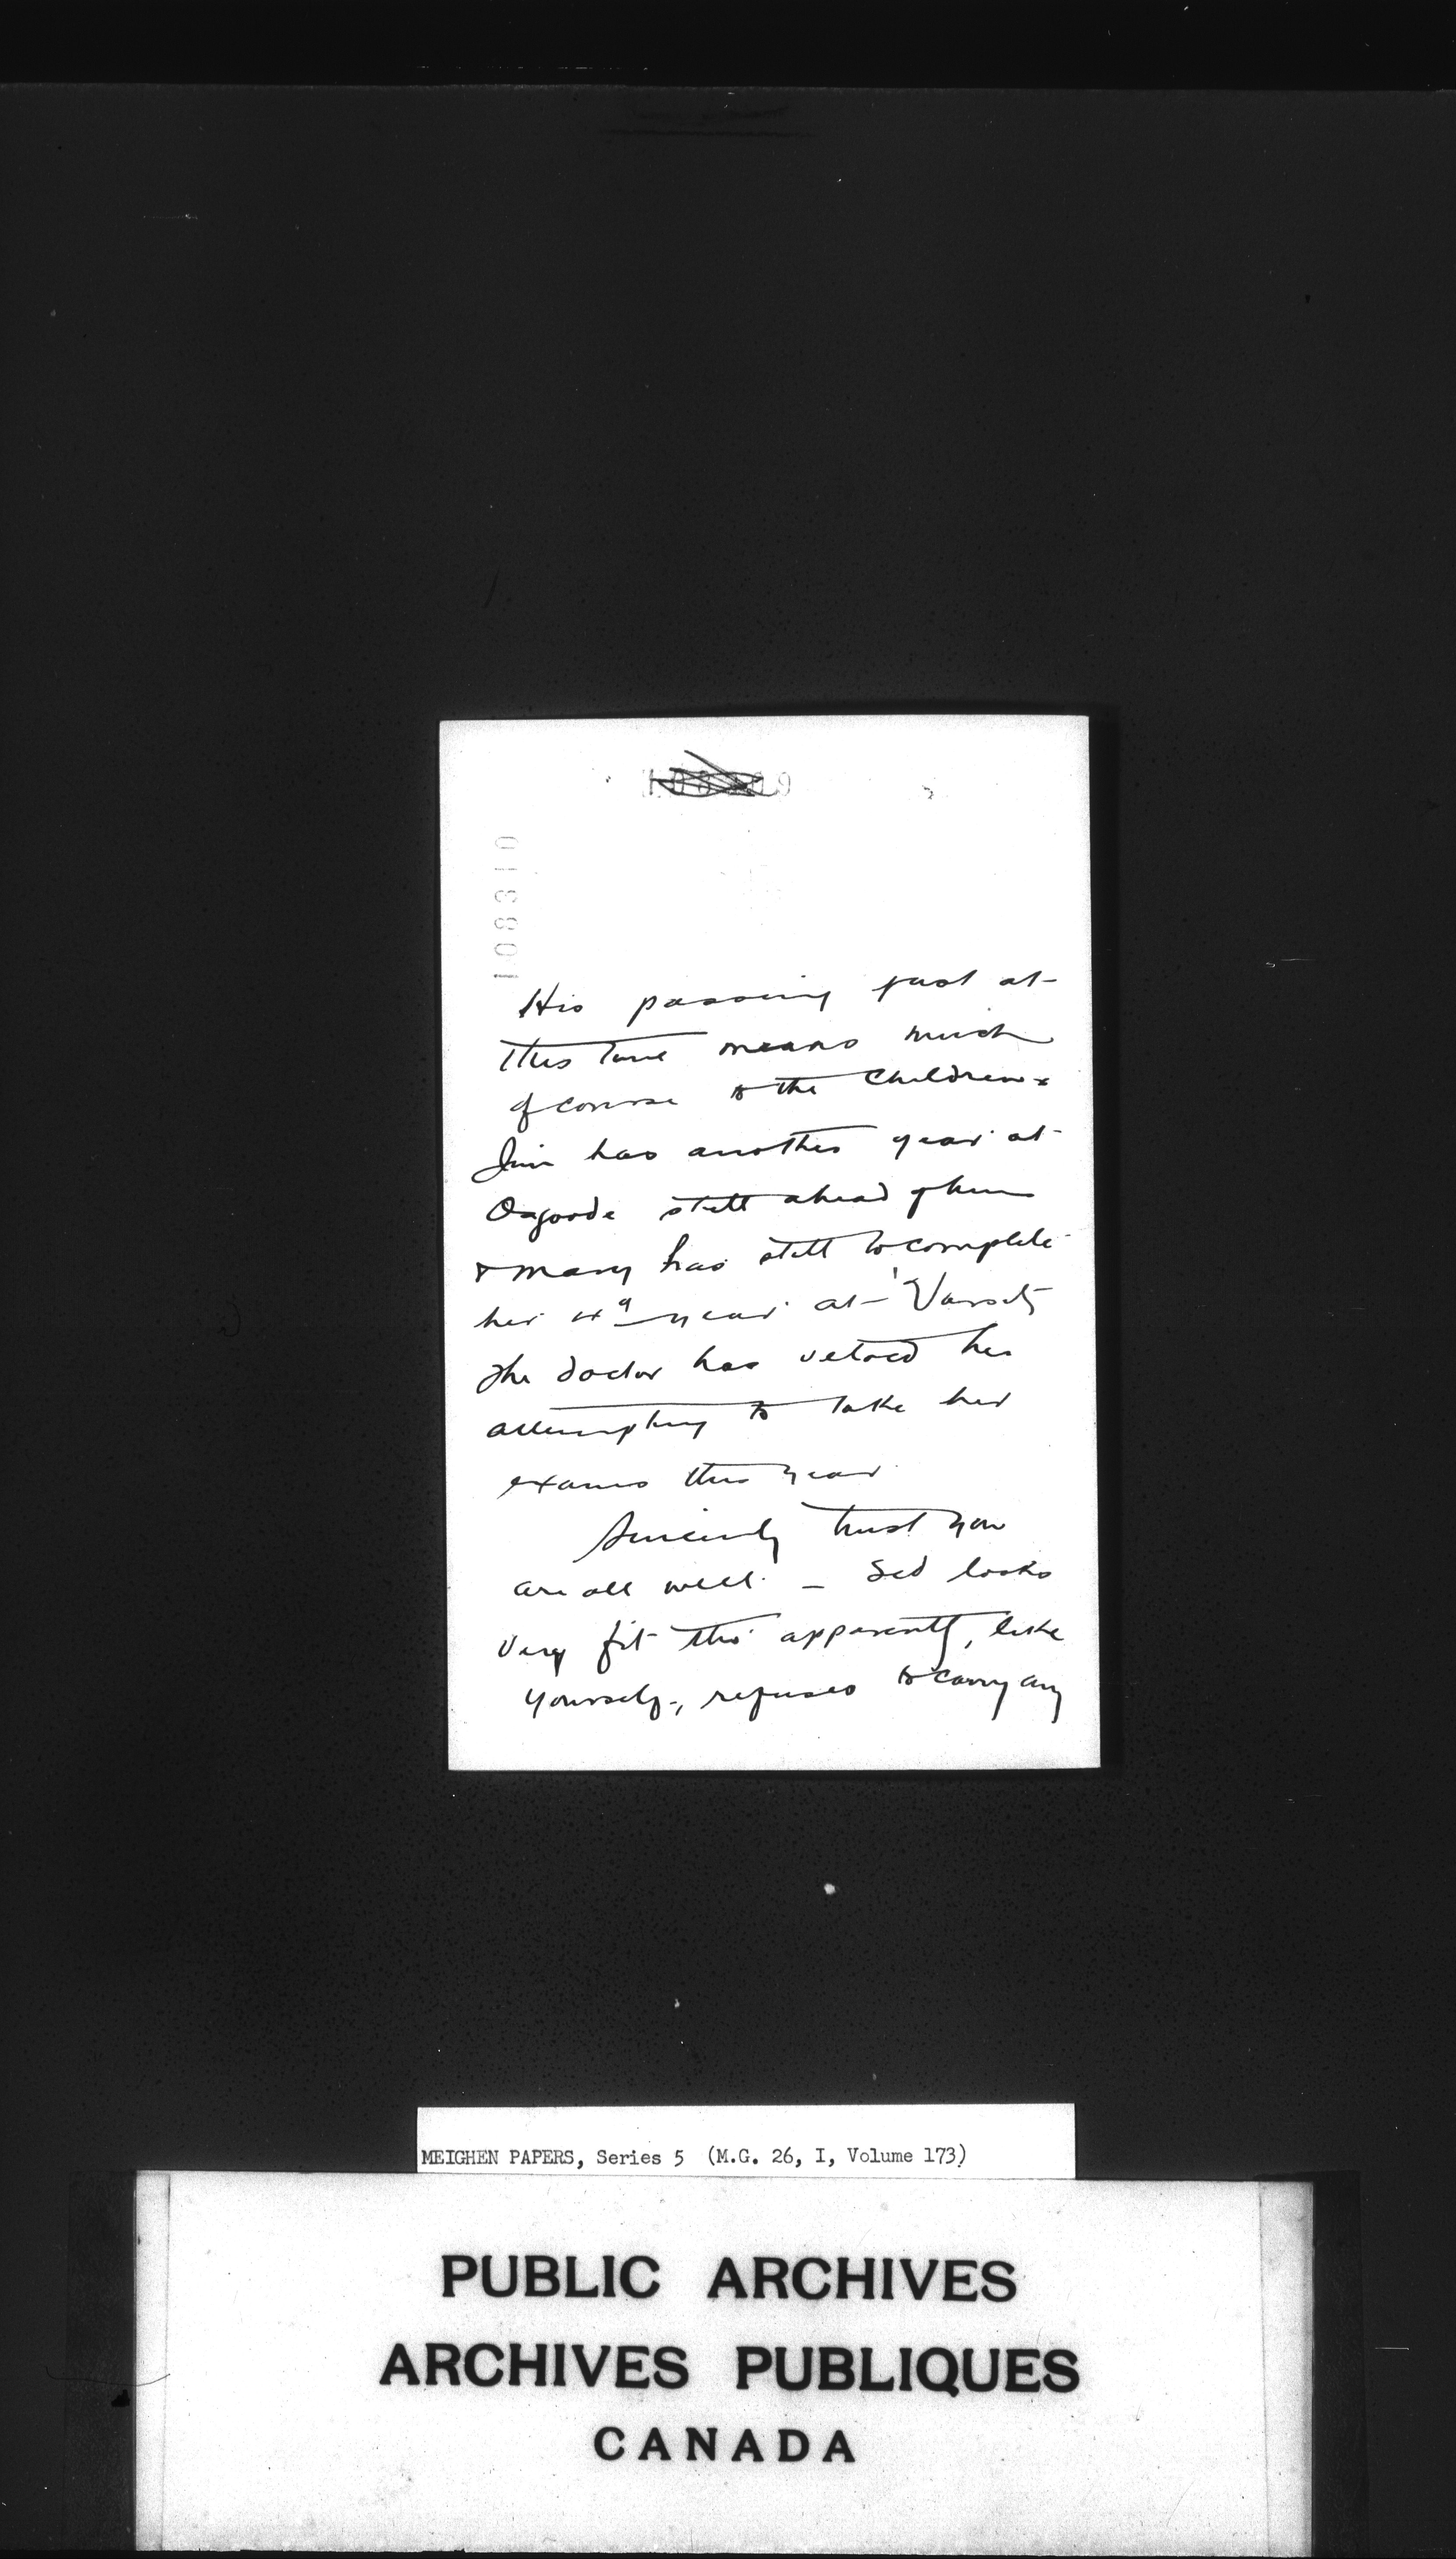 108310
His passing just at
this time means much
of course to the children -
Jim has another year at
Osgoode still ahead of him
& Mary has still to complete
her year at 'Varsity
The doctor has vetoed her
attempting to take her
exams this year
Sincerely trust you
are all well. - Ted looks
very fit tho' apparently, like
yourself, refuses to carry any
MEIGHEN PAPERS, Series 5 (M.G. 26, I, Volume 173)
PUBLIC ARCHIVES
ARCHIVES PUBLIQUES
CANADA